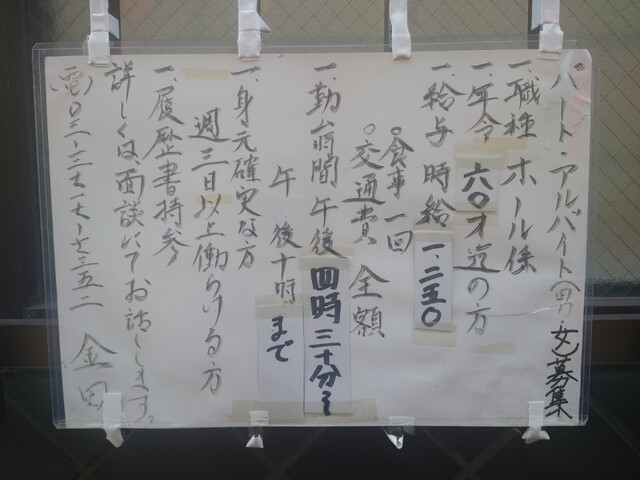 パート・アルバイト(男・女)募集
一、職種 ホール係
一、年令 六〇才迄の方
一、給与 時給 一、二五〇
○食事 一回
○交通費 全額
一、勤務時間 午後四時三十分〜
午後十時まで
一、身元確実な方
週三日以上働らける方
一、履歴書持参
詳しくは面談にてお話しします。
(電)〇三-三
金田